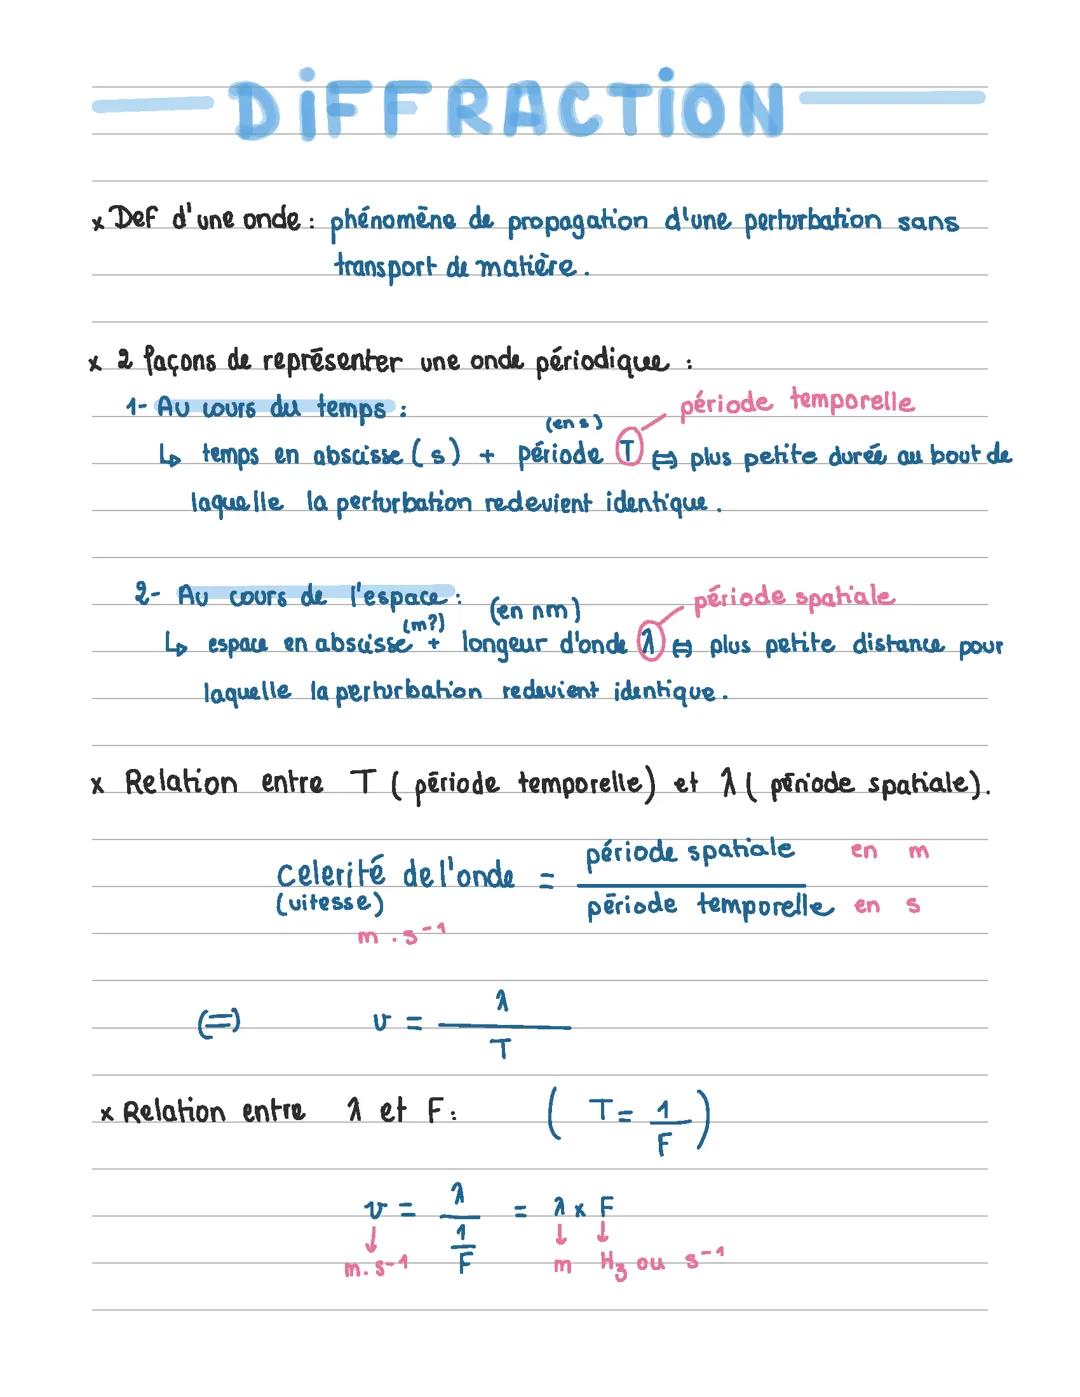 DiFFRACTiON
x Def d'une onde : phénomēne de propagation d'une perturbation sans
transport de matière.
x 2 façons de représenter une onde périodique :
1- Au cours du temps :
période temporelle
(en s)
↳ temps en abscisse (s) + période T ⇔ plus petite durée au bout de
laquelle la perturbation redevient identique.
2- Au cours de l'espace :
(en nm)
période spatiale
(m?)
↳ espace en abscisse + longeur d'onde λ ⇔ plus petite distance pour
laquelle la perturbation redevient identique.
x Relation entre T ( période temporelle) et λ ( période spatiale).
Celerité de l'onde = période spatiale en m
(vitesse) période temporelle en s
m . s⁻¹
(=) v = λ
T
x Relation entre λ et F : ( T = 1/F )
v = λ / (1/F) = λ x F
↓ ↓ ↓
m. s⁻¹ m Hz ou s⁻¹